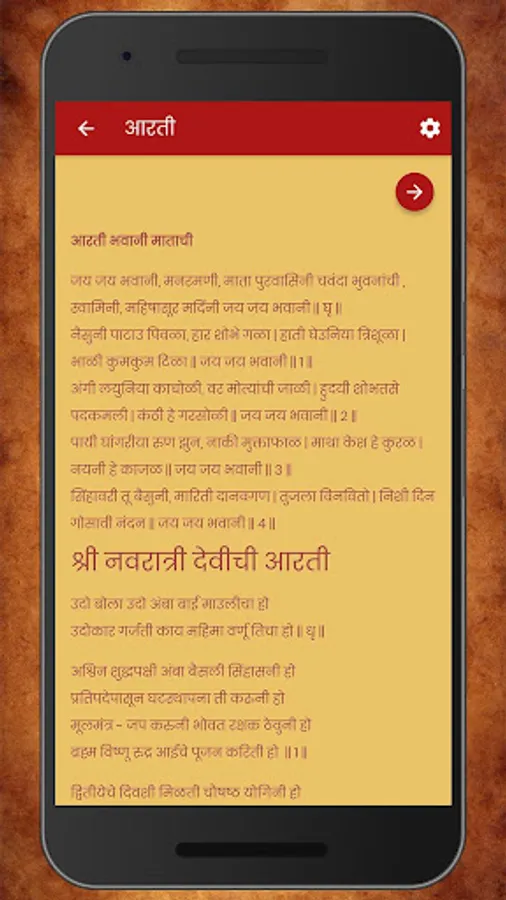 आरती
आरती भवानी माताची
जय जय भवानी, मनरमणी, माता पुरवासिनी चवंदा भुवनांची ,
स्वामिनी, महिषासूर मर्दिनी जय जय भवानी॥ घृ॥
नेसुनी पाटाउ पिवळा, हार शोभे गळा | हाती घेउनिया त्रिशूळा |
भाळी कुमकुम टिळा॥ जय जय भवानी॥1॥
अंगी लयुनिया काचोळी, वर मोत्यांची जाळी | हुदयी शोभतसे
पदकमली | कंठी हे गरसोळी॥ जय जय भवानी॥ 2॥
पायी घांगरीया रुण झुन, नाकी मुक्ताफाळ | माथा केश हे कुरळ |
नयनी हे काजळ॥ जय जय भवानी॥ 3॥
सिंहावरी तू बैसुनी, मारिती दानवगण | तुजला विनवितो | निशी दिन
गोसावी नंदन॥ जय जय भवानी॥ 4॥
श्री नवरात्री देवीची आरती
उदो बोला उदो अंबा बाई माउलीचा हो
उदोकार गर्जती काय महिमा वर्णू तिचा हो॥ धृ॥
अश्विन शुद्धपक्षी अंबा बैसली सिंहासनी हो
प्रतिपदेपासून घटस्थापना ती करूनी हो
मूलमंत्र - जप करुनी भोवत रक्षक ठेवुनी हो
ब्रह्म विष्णू रुद्र आईचे पूजन करिती हो ॥1॥
द्वितीयेचे दिवशी मिळती चौषष्ठ योगिनी हो